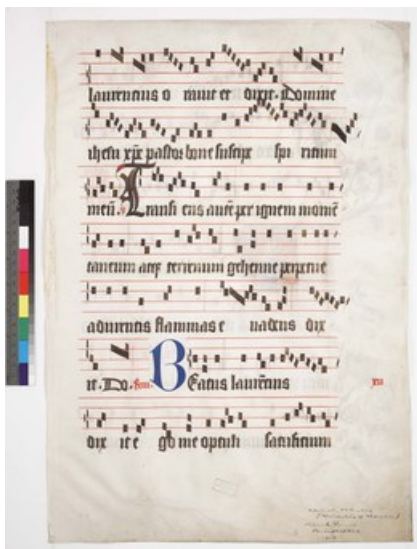 laurencius o rauit et dixit. Domine
ihesu xp̄e pastor bone suscipe spi ritum
meū. ℣ Transi ens autē per ignem momē
taneum atqꝫ terrenum gehenne perpetue
adurentis flammas e uadens dix
it. Do.
Beatus laurēcius
dix it e go me optuli sacrificium